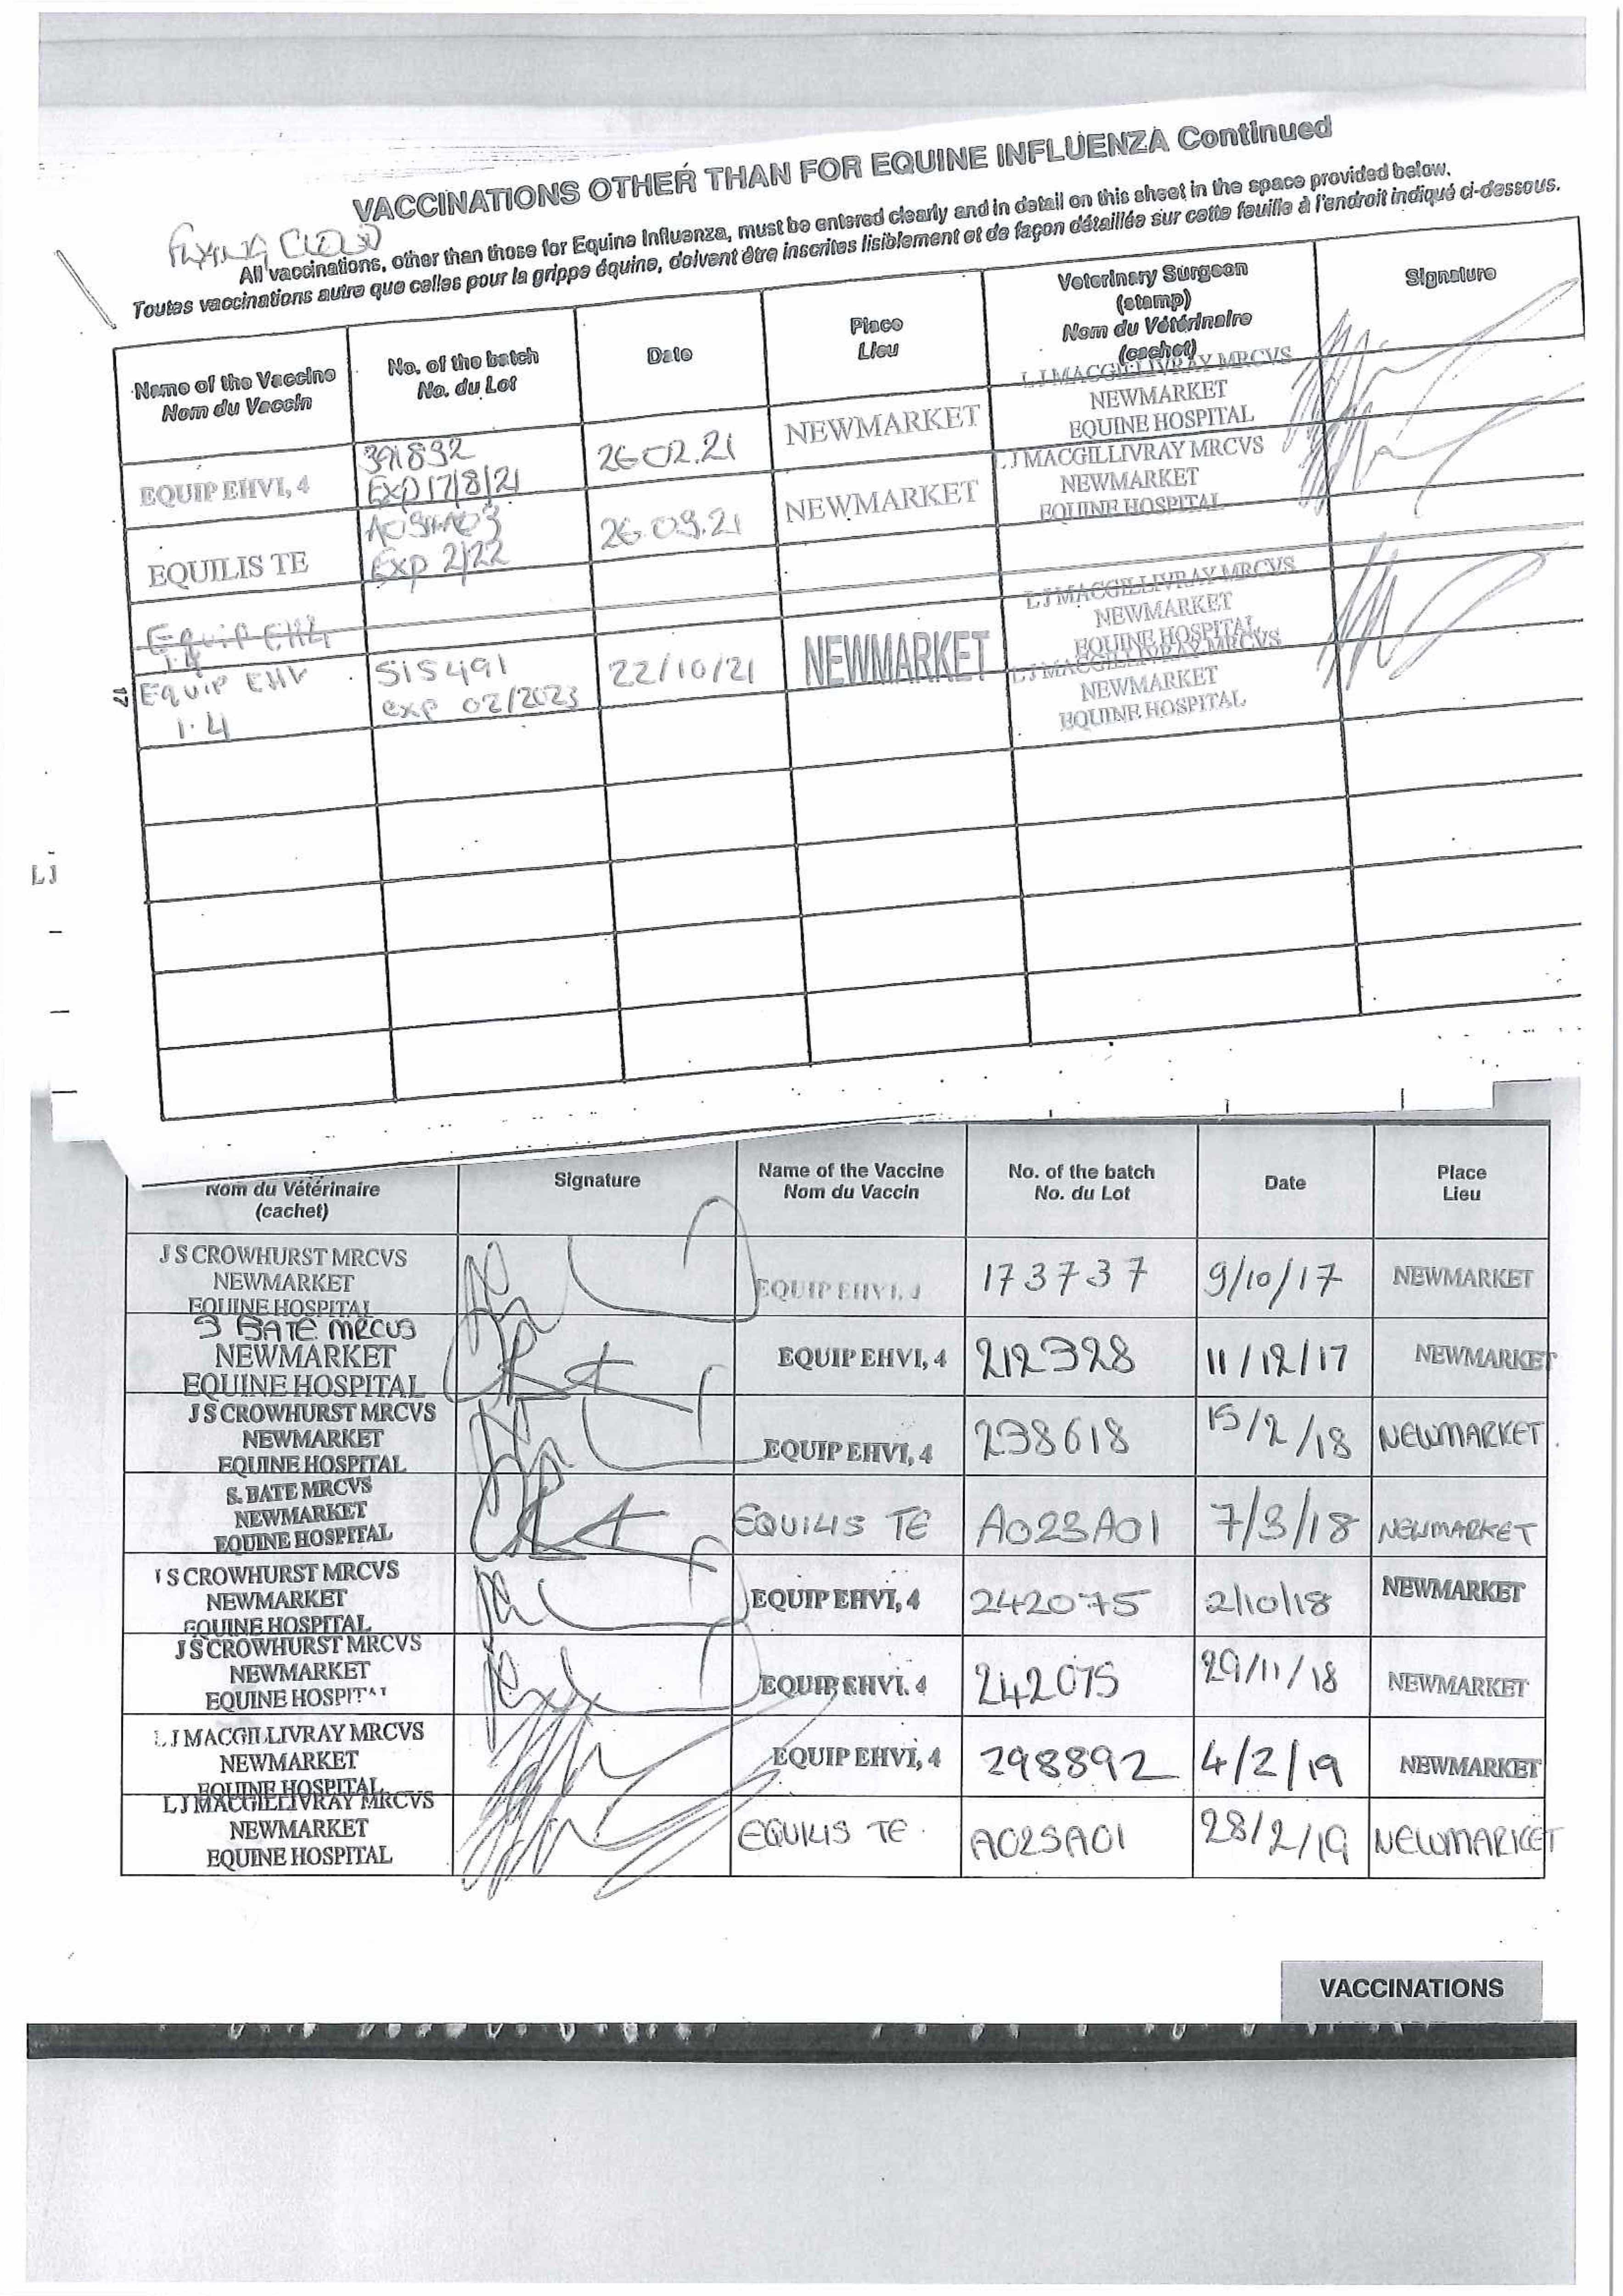 VACCINATIONS OTHER THAN FOR EQUINE INFLUENZA Continued
FLYING CLOUD
All vaccinations, other than those for Equine Influenza, must be entered clearly and in detail on this sheet in the space provided below.
Toutes vaccinations autre que celles pour la grippe équine, doivent être inscrites lisiblement et de façon détaillée sur cette feuille à l'endroit indiqué ci-dessous.
Name of the Vaccine
Nom du Vaccin
No. of the batch
No. du Lot
Date
Place
Lieu
Veterinary Surgeon
(stamp)
Nom du Vétérinaire
(cachet)
Signature
EQUIP EHVI, 4
391832
Exp 17/8/21
26.02.21
NEWMARKET
L J MACGILLIVRAY MRCVS
NEWMARKET
EQUINE HOSPITAL
EQUILIS TE
Exp 2/22
NEWMARKET
L J MACGILLIVRAY MRCVS
NEWMARKET
EQUINE HOSPITAL
Equip EH4
1.4
L J MACGILLIVRAY MRCVS
NEWMARKET
EQUINE HOSPITAL
17
EQUIP EHV
1.4
515491
exp 02/2023
22/10/21
NEWMARKET
L J MACGILLIVRAY MRCVS
NEWMARKET
EQUINE HOSPITAL
LJ
Nom du Vétérinaire
(cachet)
Signature
Name of the Vaccine
Nom du Vaccin
No. of the batch
No. du Lot
Date
Place
Lieu
J S CROWHURST MRCVS
NEWMARKET
EQUINE HOSPITAL
EQUIP EHVI, 4
173737
9/10/17
NEWMARKET
S BATE MRCVS
NEWMARKET
EQUINE HOSPITAL
EQUIP EHVI, 4
212328
11/12/17
NEWMARKET
J S CROWHURST MRCVS
NEWMARKET
EQUINE HOSPITAL
EQUIP EHVI, 4
238618
15/2/18
NEWMARKET.
S. BATE MRCVS
NEWMARKET
EQUINE HOSPITAL
EQUILIS TE
A023A01
7/3/18
NEWMARKET
S CROWHURST MRCVS
NEWMARKET
EQUINE HOSPITAL
EQUIP EHVI, 4
242075
2/10/18
NEWMARKET
J S CROWHURST MRCVS
NEWMARKET
EQUINE HOSPITAL
EQUIP EHVI. 4
242075
29/11/18
NEWMARKET
L J MACGILLIVRAY MRCVS
NEWMARKET
EQUINE HOSPITAL
EQUIP EHVI, 4
298892
4/2/19
NEWMARKET
L J MACGILLIVRAY MRCVS
NEWMARKET
EQUINE HOSPITAL
EQUILIS TE.
A025A01
28/2/19
NEWMARKET
VACCINATIONS